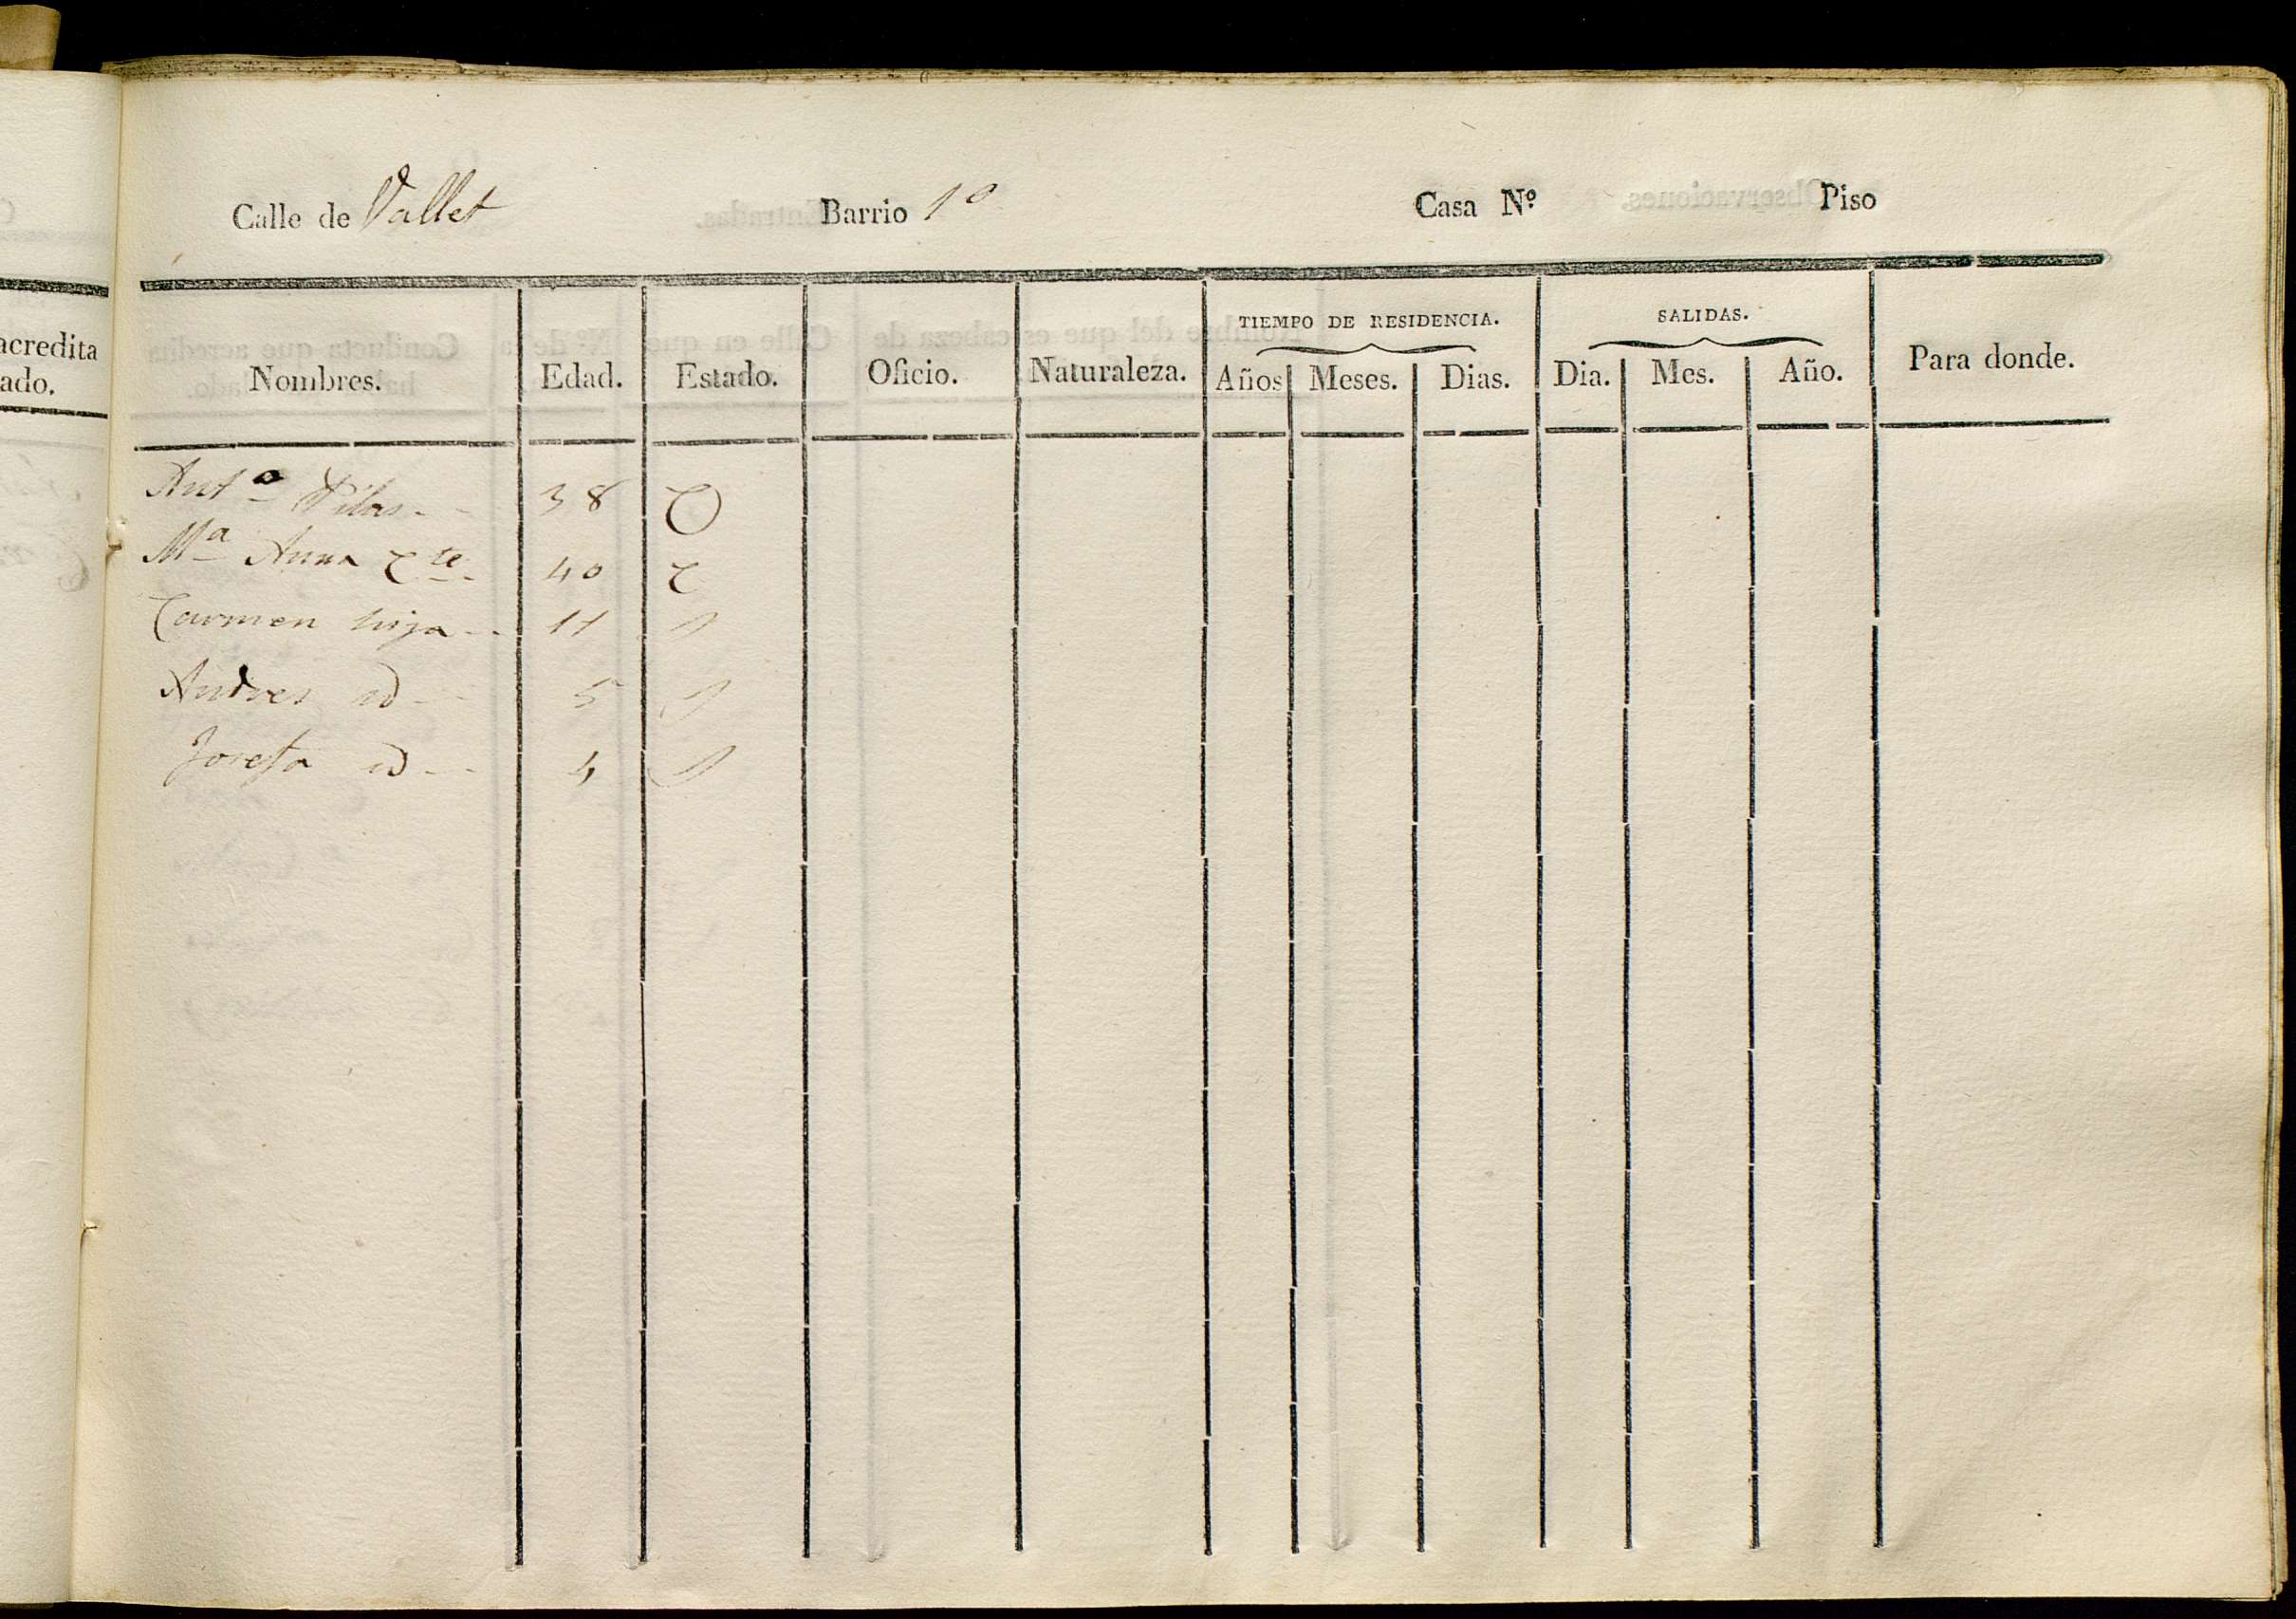 Calle de Vallet Barrio 1º Casa Nº Piso
TIEMPO DE RESIDENCIA. SALIDAS.
Nombres. Edad. Estado. Oficio. Naturaleza. Años Meses. Dias. Dia. Mes. Año. Para donde.
Antº Vilas 38 C
Mª Anna Cte 40 C
Carmen hija 11 S
Andres id 5 S
Josefa id 4 S
acredita
ado.